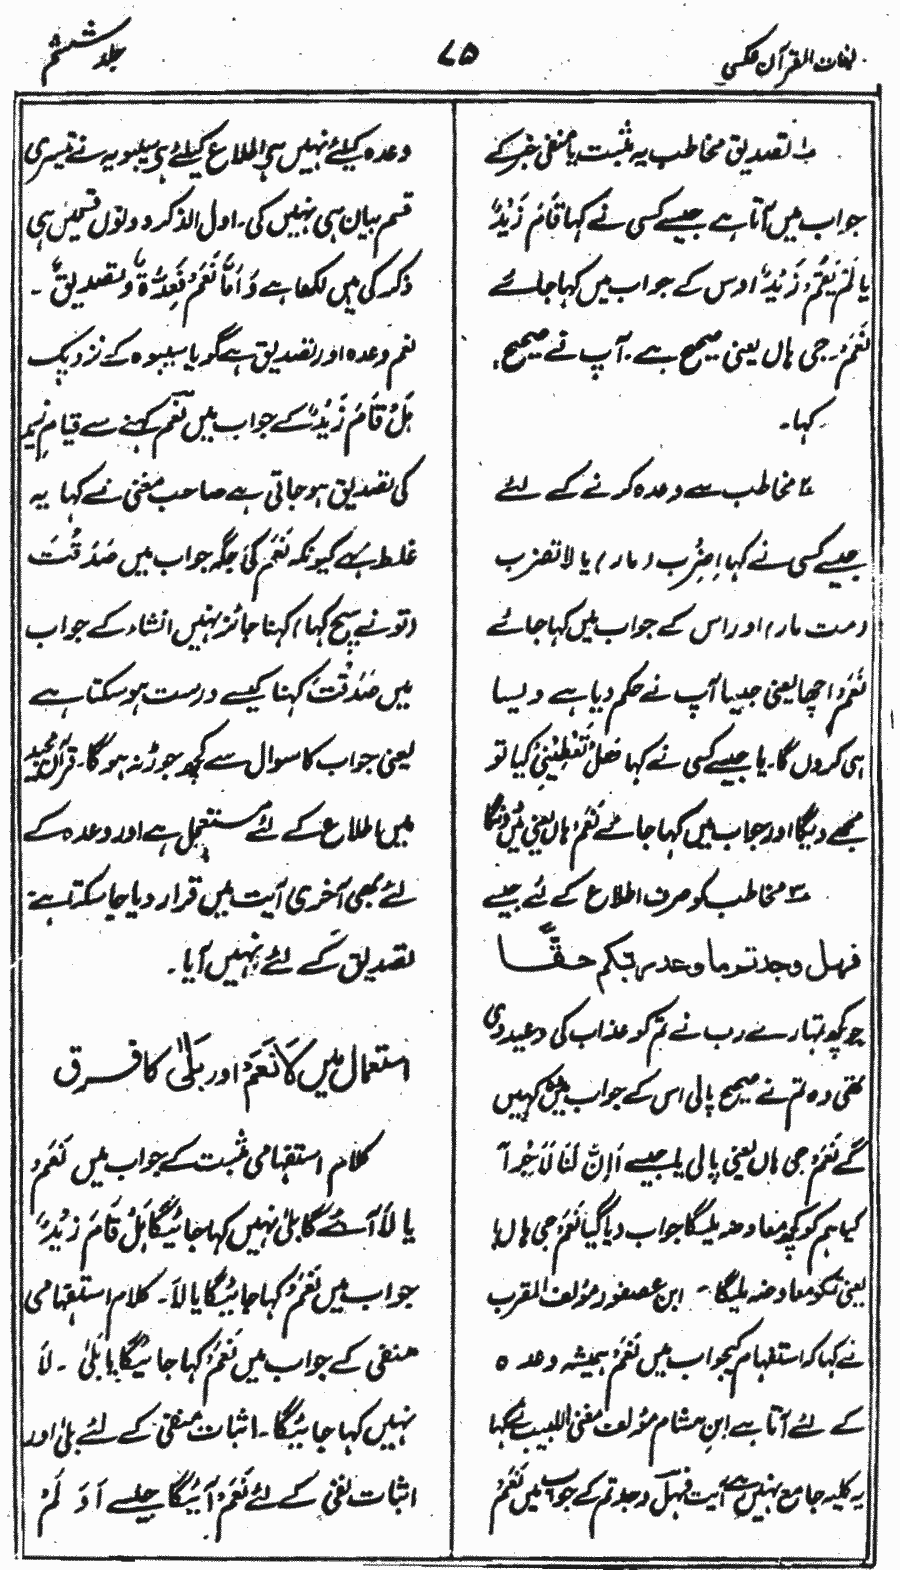 لغات القرآن عکسی
۷۵
جلد ششم
۱؎ تصدیق مخاطب یہ مثبت یا منفی خبر کے
جواب میں آتا ہے جیسے کسی نے کہا قَامَ زَیْدٌ
یا لَمْ یَقُمْ زَیْدٌ اوس کے جواب میں کہا جائے
نَعَمْ۔ جی ہاں یعنی صحیح ہے۔ آپ نے صحیح
کہا۔
۲؎ مخاطب سے وعدہ کرنے کے لئے
جیسے کسی نے کہا اِضْرِب (مار) یا لا تضرب
(مت مار) اور اس کے جواب میں کہا جائے
نَعَمْ اچھا یعنی جیسا آپ نے حکم دیا ہے ویسا
ہی کروں گا۔ یا جیسے کسی نے کہا هَلْ تُعْطِیْنِیْ کیا تو
مجھے دیگا اور جواب میں کہا جائے نَعَمْ ہاں یعنی میں دونگا
۳؎ مخاطب کو صرف اطلاع کے لئے جیسے
فهل وجدتم ما وعد ربكم حقًّا
جو کچھ تمہارے رب نے تم کو عذاب کی وعید دی
تھی وہ تم نے صحیح پالی اس کے جواب میں کہیں
گے نَعَمْ جی ہاں یعنی پالی یا جیسے اَاِنَّ لَنَا لَاَجْراً
کیا ہم کو کچھ معاوضہ ملیگا جواب دیا گیا نَعَمْ جی ہاں
یعنی تمکو معاوضہ ملیگا۔ ابن عصفور مؤلف المقرب
نے کہا کہ استفہام کے جواب میں نَعَمْ ہمیشہ وعدہ
کے لئے آتا ہے ابن ہشام مؤلف مغنی اللبیب نے کہا
یہ کلیہ جامع نہیں ہے آیت فهل وجدتم کے جواب میں نَعَمْ
وعدہ کیلئے نہیں ہے اطلاع کیلئے ہے سیبویہ نے تیسری
قسم بیان ہی نہیں کی۔ اول الذکر دونوں قسمیں ہی
ذکر کی ہیں لکھا ہے وَ اَمَّا نَعَمْ فَعِدَةٌ وتصدیقٌ۔
نعم وعدہ اور تصدیق ہے گویا سیبویہ کے نزدیک
هَلْ قَامَ زَیْدٌ کے جواب میں نَعَمْ کہنے سے قیامِ زید
کی تصدیق ہو جاتی ہے صاحب مغنی نے کہا یہ
غلط ہے کیونکہ نَعَمْ کی جگہ جواب میں صَدَقْتَ
(تو نے سچ کہا) کہنا جائز نہیں انشاء کے جواب
میں صَدَقْتَ کہنا کیسے درست ہو سکتا ہے
یعنی جواب کا سوال سے کچھ جوڑ نہ ہوگا۔ قرآن مجید
میں اطلاع کے لئے مستعمل ہے اور وعدہ کے
لئے بھی آخری آیت میں قرار دیا جا سکتا ہے
تصدیق کے لئے نہیں آیا۔
استعمال میں لَا نَعَمْ اور بَلٰی کا فرق
کلام استفہامی مثبت کے جواب میں نَعَمْ
یا لَا آئے گا بلیٰ نہیں کہا جائیگا هَلْ قَامَ زَیْدٌ
جواب میں نَعَمْ کہا جائیگا یا لَا۔ کلام استفہامی
منفی کے جواب میں نَعَمْ کہا جائیگا یا بَلٰی۔ لَا
نہیں کہا جائیگا۔ اثبات منفی کے لئے بلیٰ اور
اثبات نفی کے لئے نَعَمْ آئیگا جیسے اَوَ لَمْ